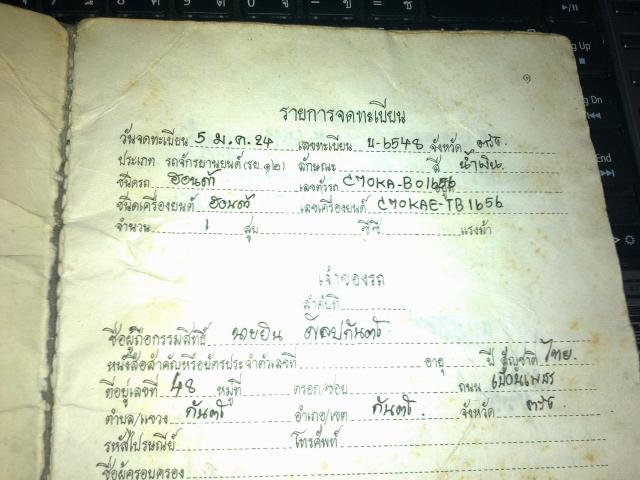 ๑
รายการจดทะเบียน
วันจดทะเบียน 5 ม.ค.24 เลขทะเบียน น-6548 จังหวัด ตรัง
ประเภท รถจักรยานยนต์(รย.๑๒) ลักษณะ สี น้ำเงิน
ชนิดรถ ฮอนด้า เลขตัวรถ CM0KA-B01656
ชนิดเครื่องยนต์ ฮอนด้า เลขเครื่องยนต์ CM0KAE-TB1656
จำนวน 1 สูบ ซีซี แรงม้า
เจ้าของรถ
ลำดับที่
ชื่อผู้ถือกรรมสิทธิ์ นายยิน
หนังสือสำคัญหรือบัตรประจำตัวเลขที่ อายุ ปี สัญชาติ ไทย.
ที่อยู่เลขที่ 48 หมู่ที่ ตรอก/ซอย ถนน
ตำบล/แขวง กันตัง อำเภอ/เขต กันตัง. จังหวัด ตรัง
รหัสไปรษณีย์ โทรศัพท์
ชื่อผู้ครอบครอง